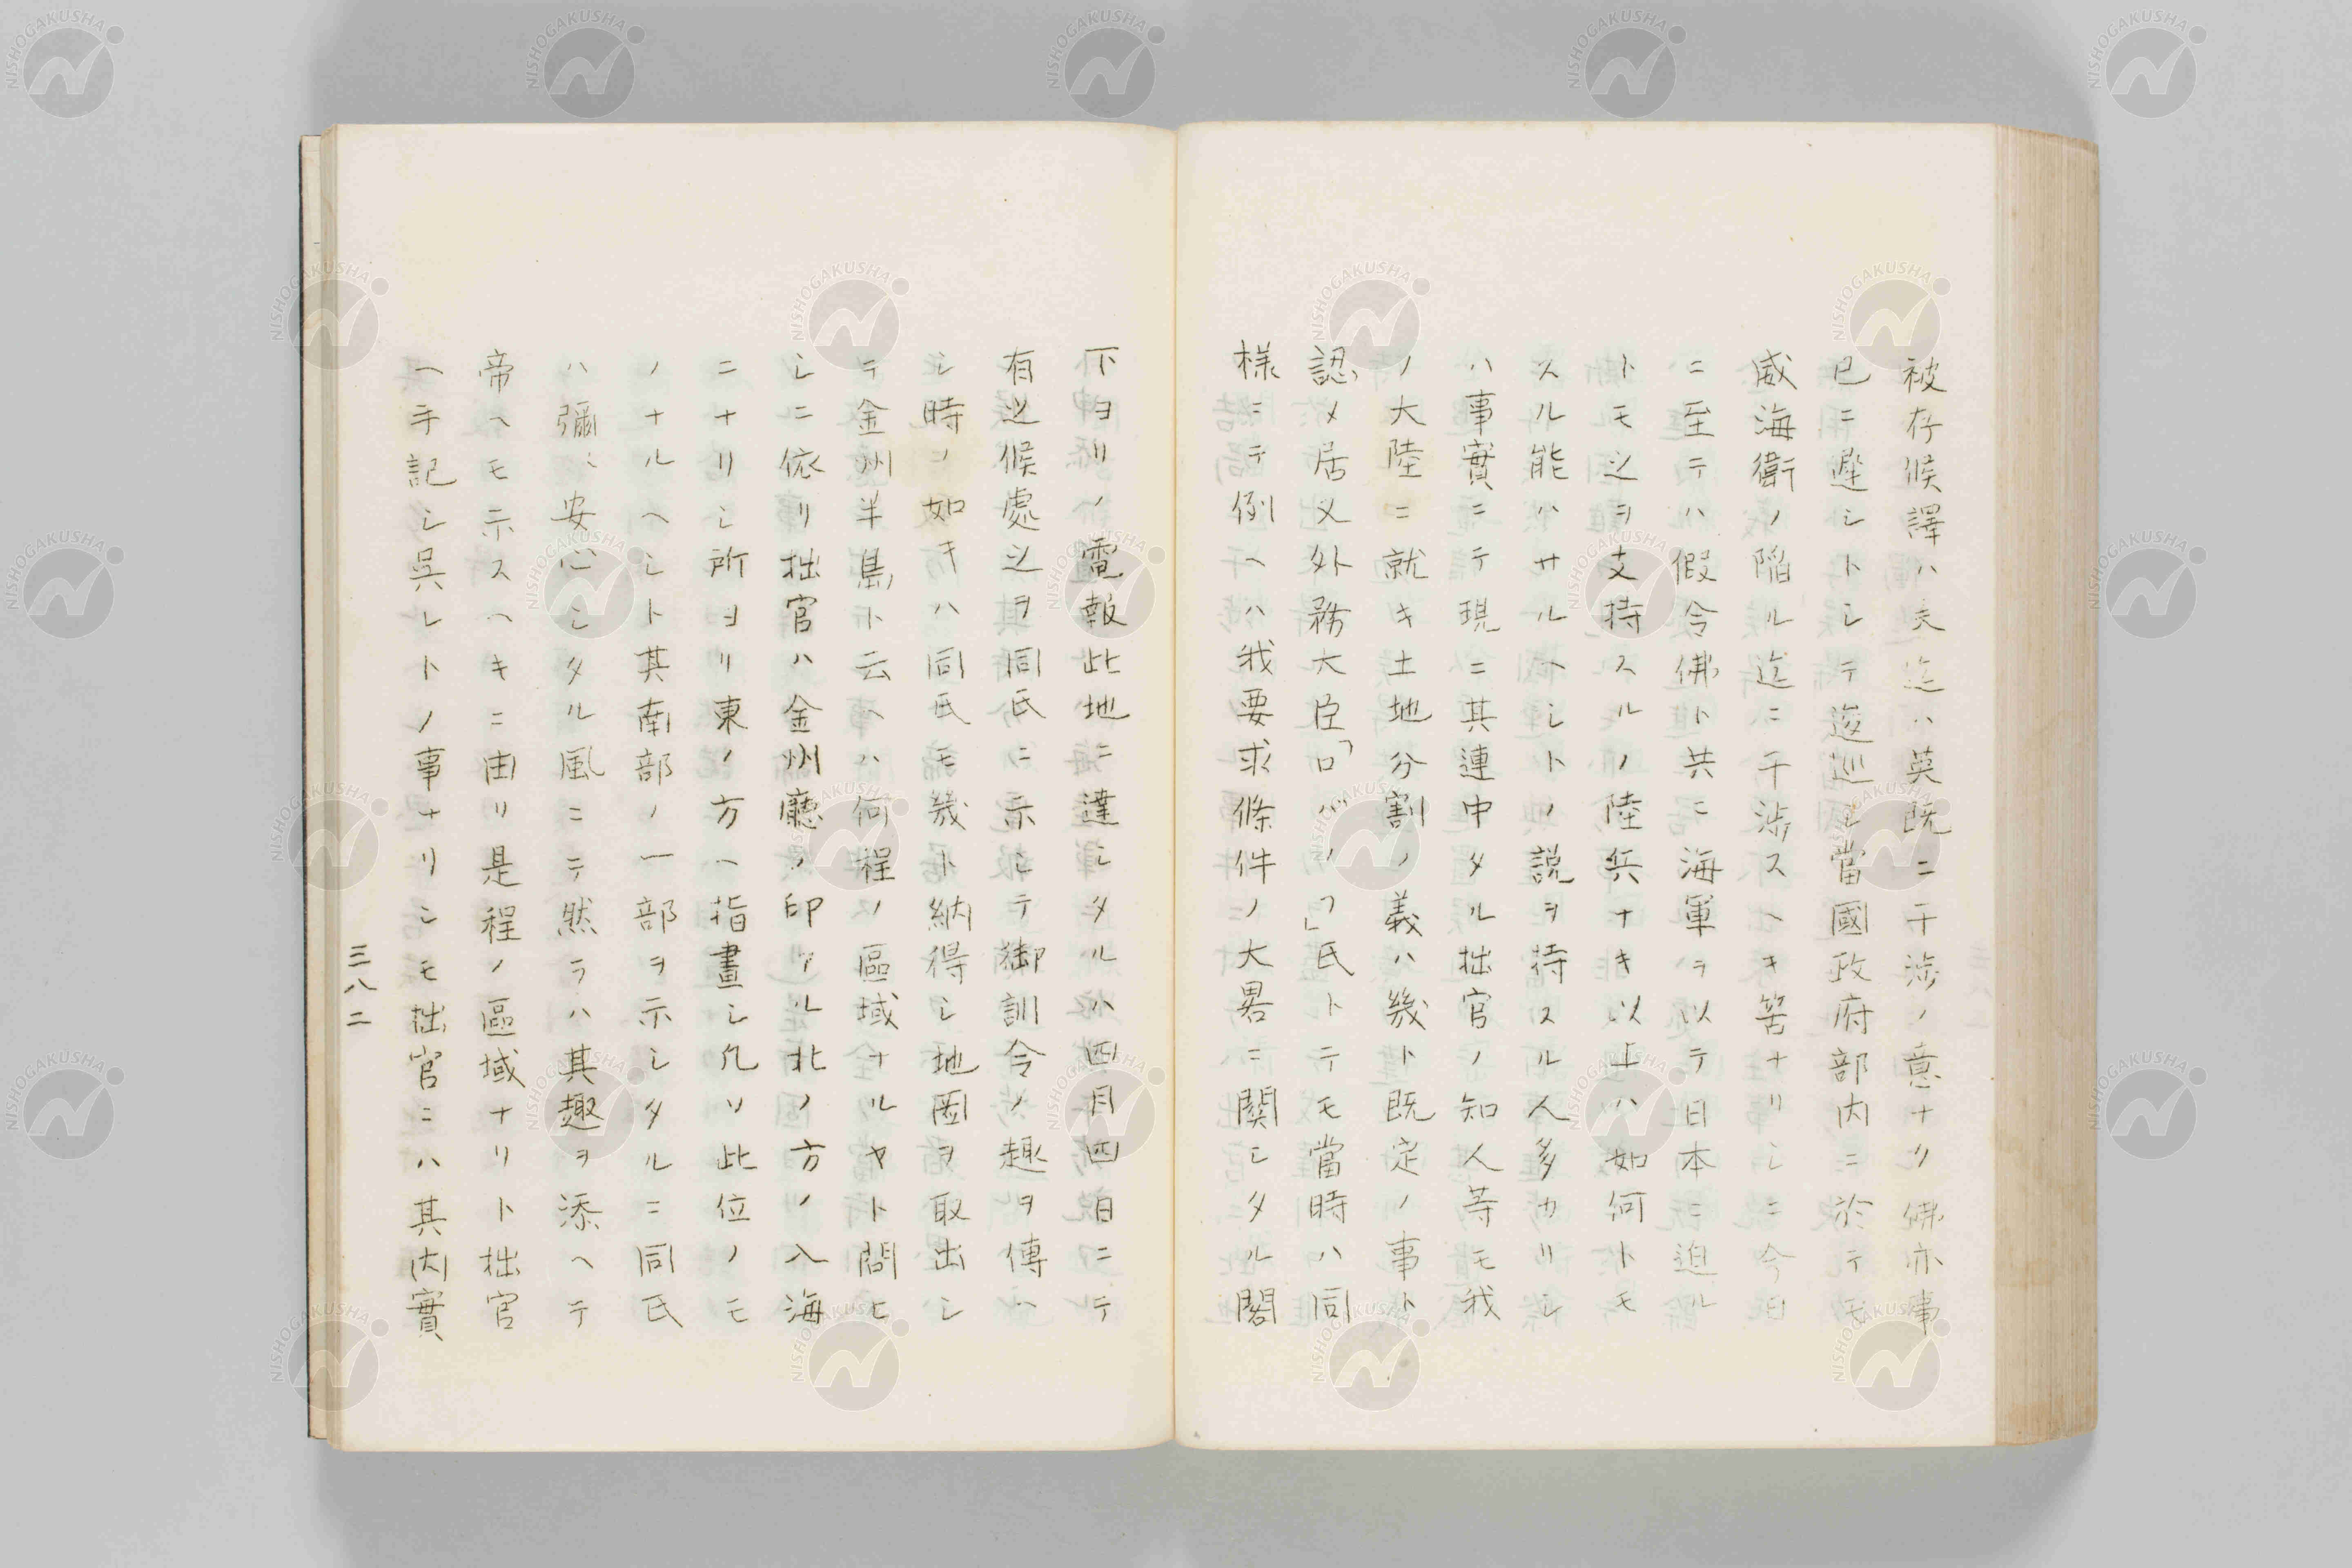 被存候譯ハ夫迄ハ英既ニ干渉ノ意ナク佛亦事
已ニ遲シトシテ逡巡シ當國政府部内ニ於テモ
威海衛ノ陷ル迄ニ干渉スヘキ筈ナリシニ今日
ニ至テハ假令佛ト共ニ海軍ヲ以テ日本ニ迫ル
トモ之ヲ支持スルノ陸兵ナキ以上ハ如何トモ
スル能ハサルヘシトノ説ヲ持スル人多カリシ
ハ事實ニテ現ニ其連中タル拙官ノ知人等モ我
ノ大陸ニ就キ土地分割ノ義ハ幾ト既定ノ事ト
認メ居又外務大臣「ロバノフ」氏トテモ當時ハ同
様ニテ例ヘハ我要求條件ノ大畧ニ關シタル閣
下ヨリノ電報此地ニ達シタルハ四月四日ニテ
有之候處之ヲ同氏ニ示シテ御訓令ノ趣ヲ傳ヘ
シ時ノ如キハ同氏モ幾ト納得シ地圖ヲ取出シ
テ金州半島ト云ヘハ何程ノ區域ナルヤト問ヒ
シニ依リ拙官ハ金州廳ノ印アル北ノ方ノ入海
ニナリシ所ヨリ東ノ方ヘ指畫シ凡ソ此位ノモ
ノナルヘシト其南部ノ一部ヲ示シタルニ同氏
ハ彌々安心シタル風ニテ然ラハ其趣ヲ添ヘテ
帝ヘモ示スヘキニ由リ是程ノ區域ナリト拙官
ヘ手記シ呉レトノ事ナリシモ拙官ニハ其内實
三八二